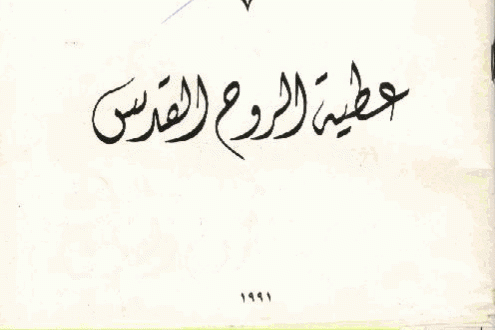 عطية الروح القدس
١٩٩١